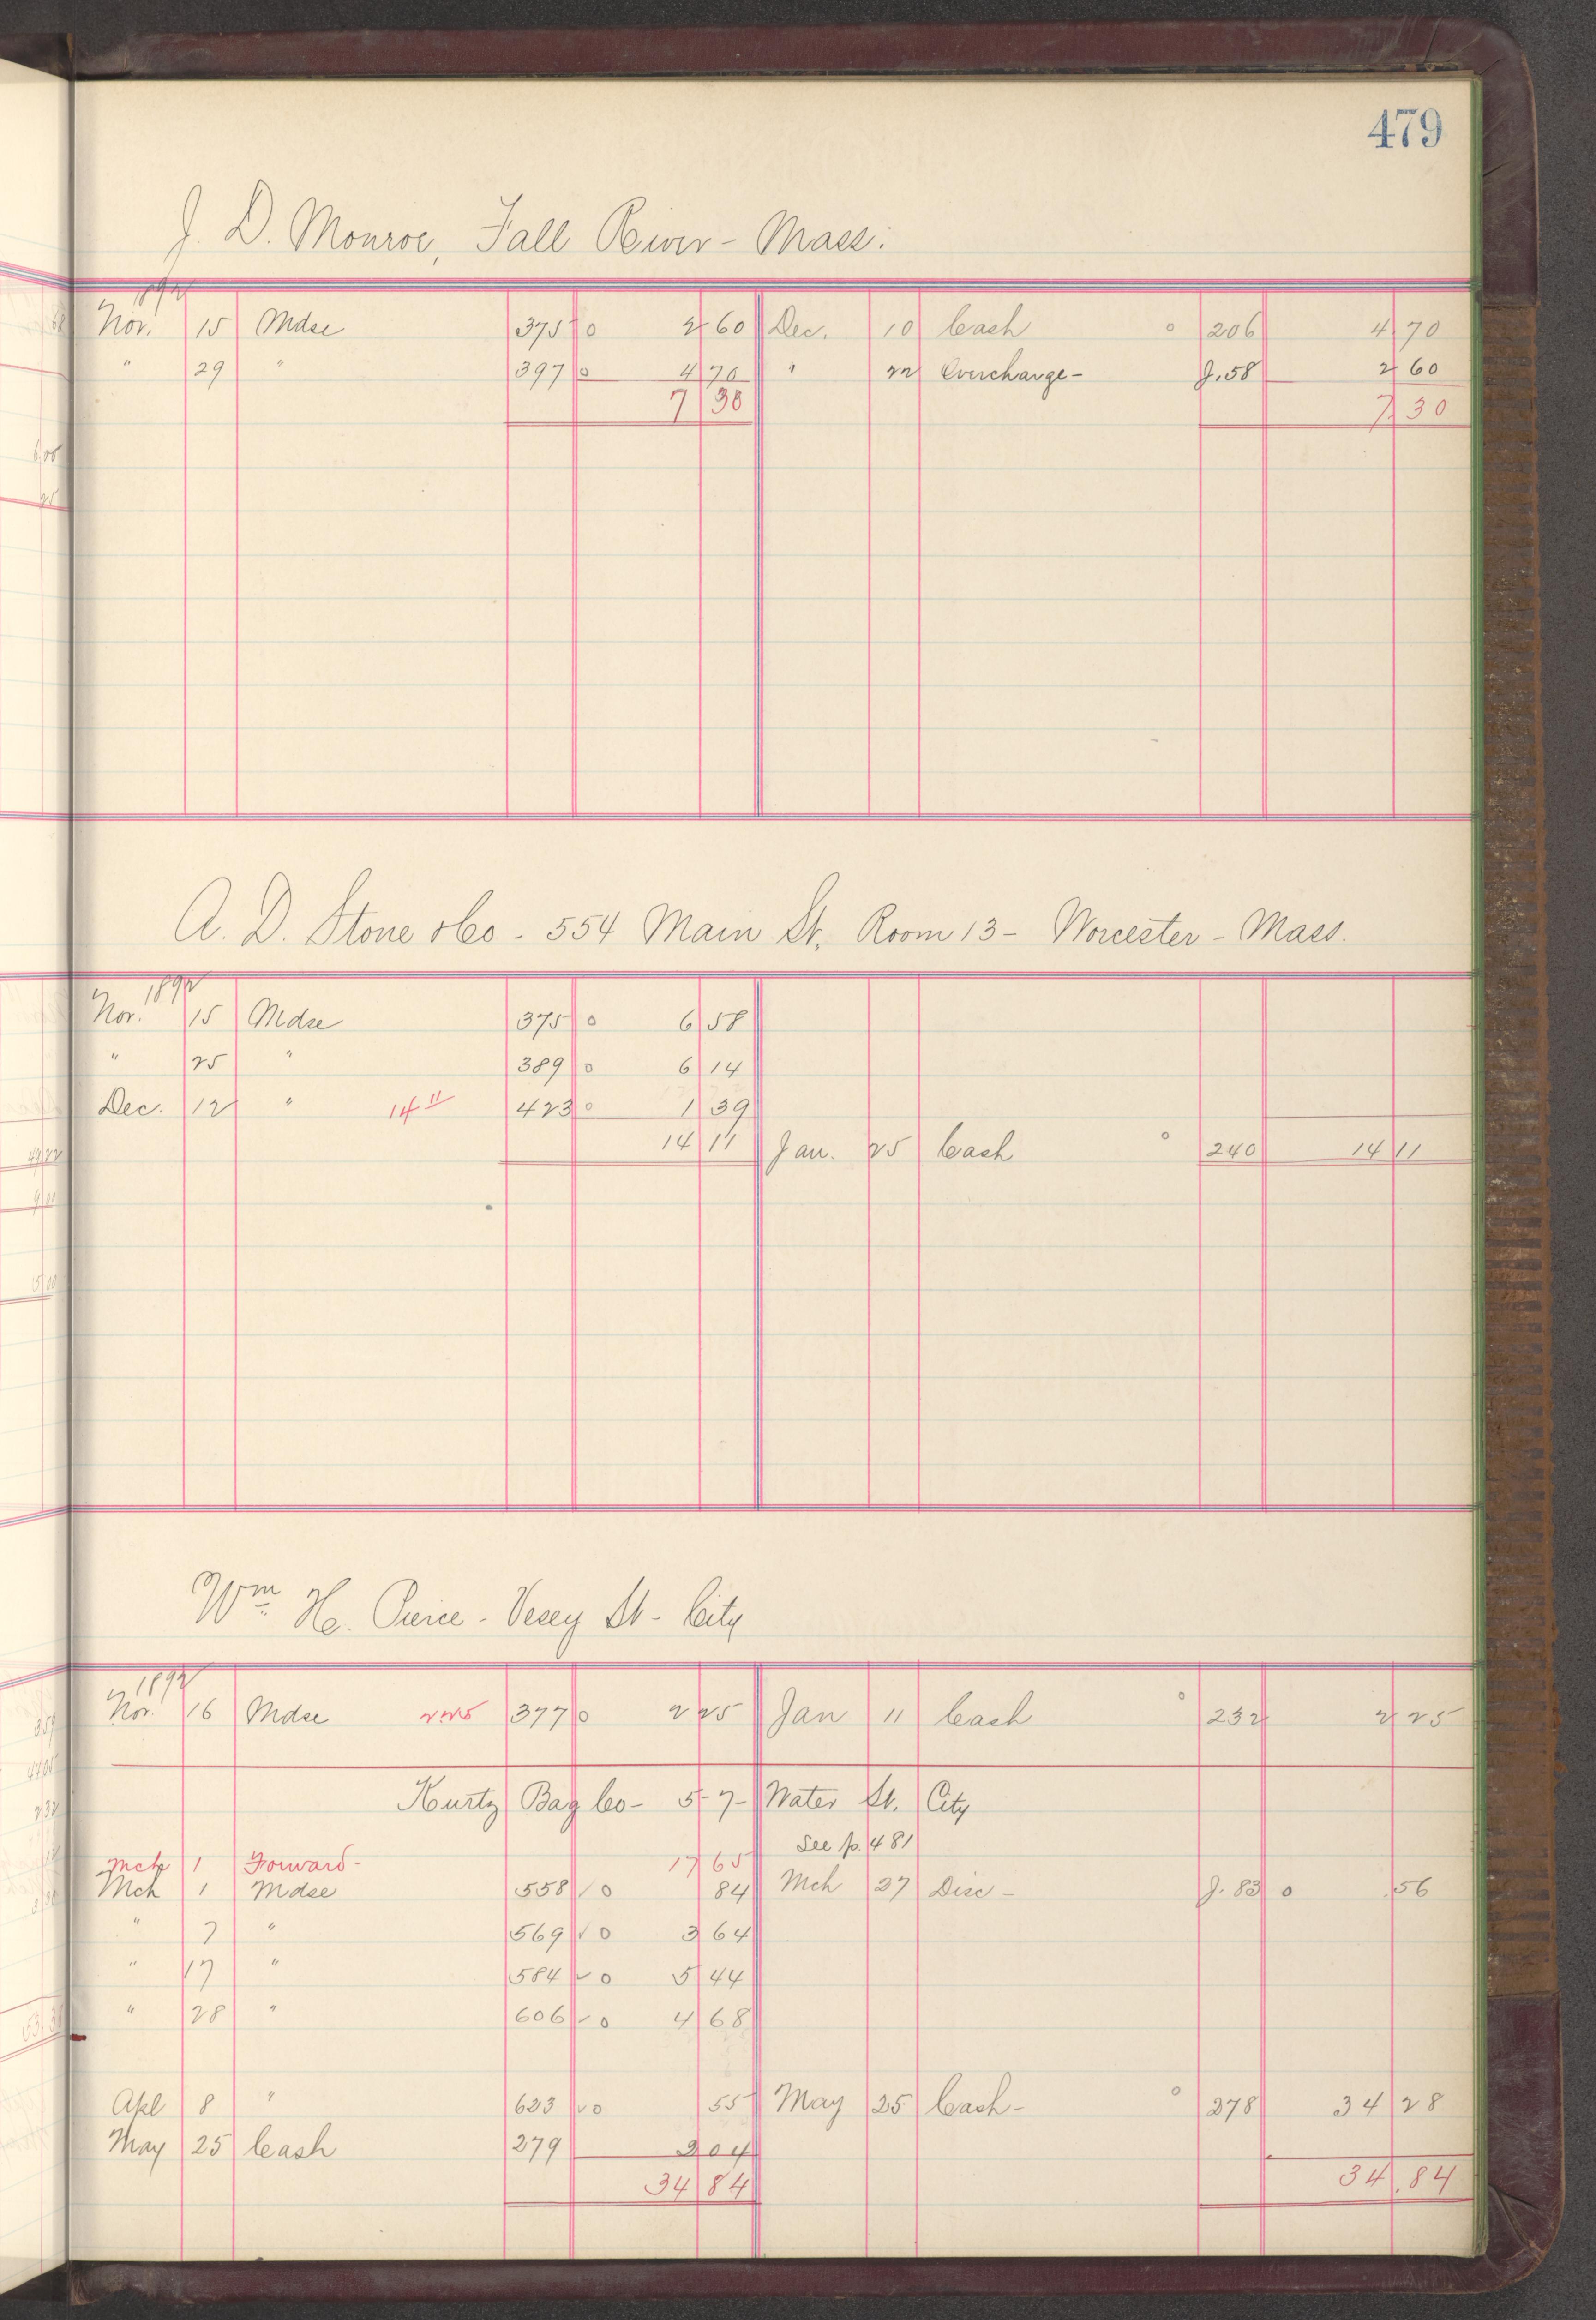 479
J. D. Monroe, Fall River - Mass:
1892
Nov. 15 Mdse 375 0 2 60 Dec. 10 Cash 0 206 4 70
" 29 " 397 0 4 70 " 22 Overcharge - J. 58 2 60
7 30 7 30
A. D. Stone & Co - 554 Main St, Room 13 - Worcester - Mass.
1892
Nov. 15 Mdse 375 0 6 58
" 25 " 389 0 6 14
Dec. 12 " 14 11 423 0 1 39
14 11 Jan. 25 Cash 0 240 14 11
Wm H. Pierce - Vesey St - City
1892
Nov. 16 Mdse 2.25 377 0 2 25 Jan 11 Cash 0 232 2 25
Kurtz Bag Co - 5-7- Water St. City
See p. 481
Mch 1 Forward - 17 65
Mch 1 Mdse 558 ✓ 0 84 Mch 27 Disc - J. 83 0 .56
" 7 " 569 ✓ 0 3 64
" 17 " 584 ✓ 0 5 44
" 28 " 606 ✓ 0 4 68
Apl 8 " 623 ✓ 0 55 May 25 Cash - 0 278 34 28
May 25 Cash 279 2 04
34 84 34.84